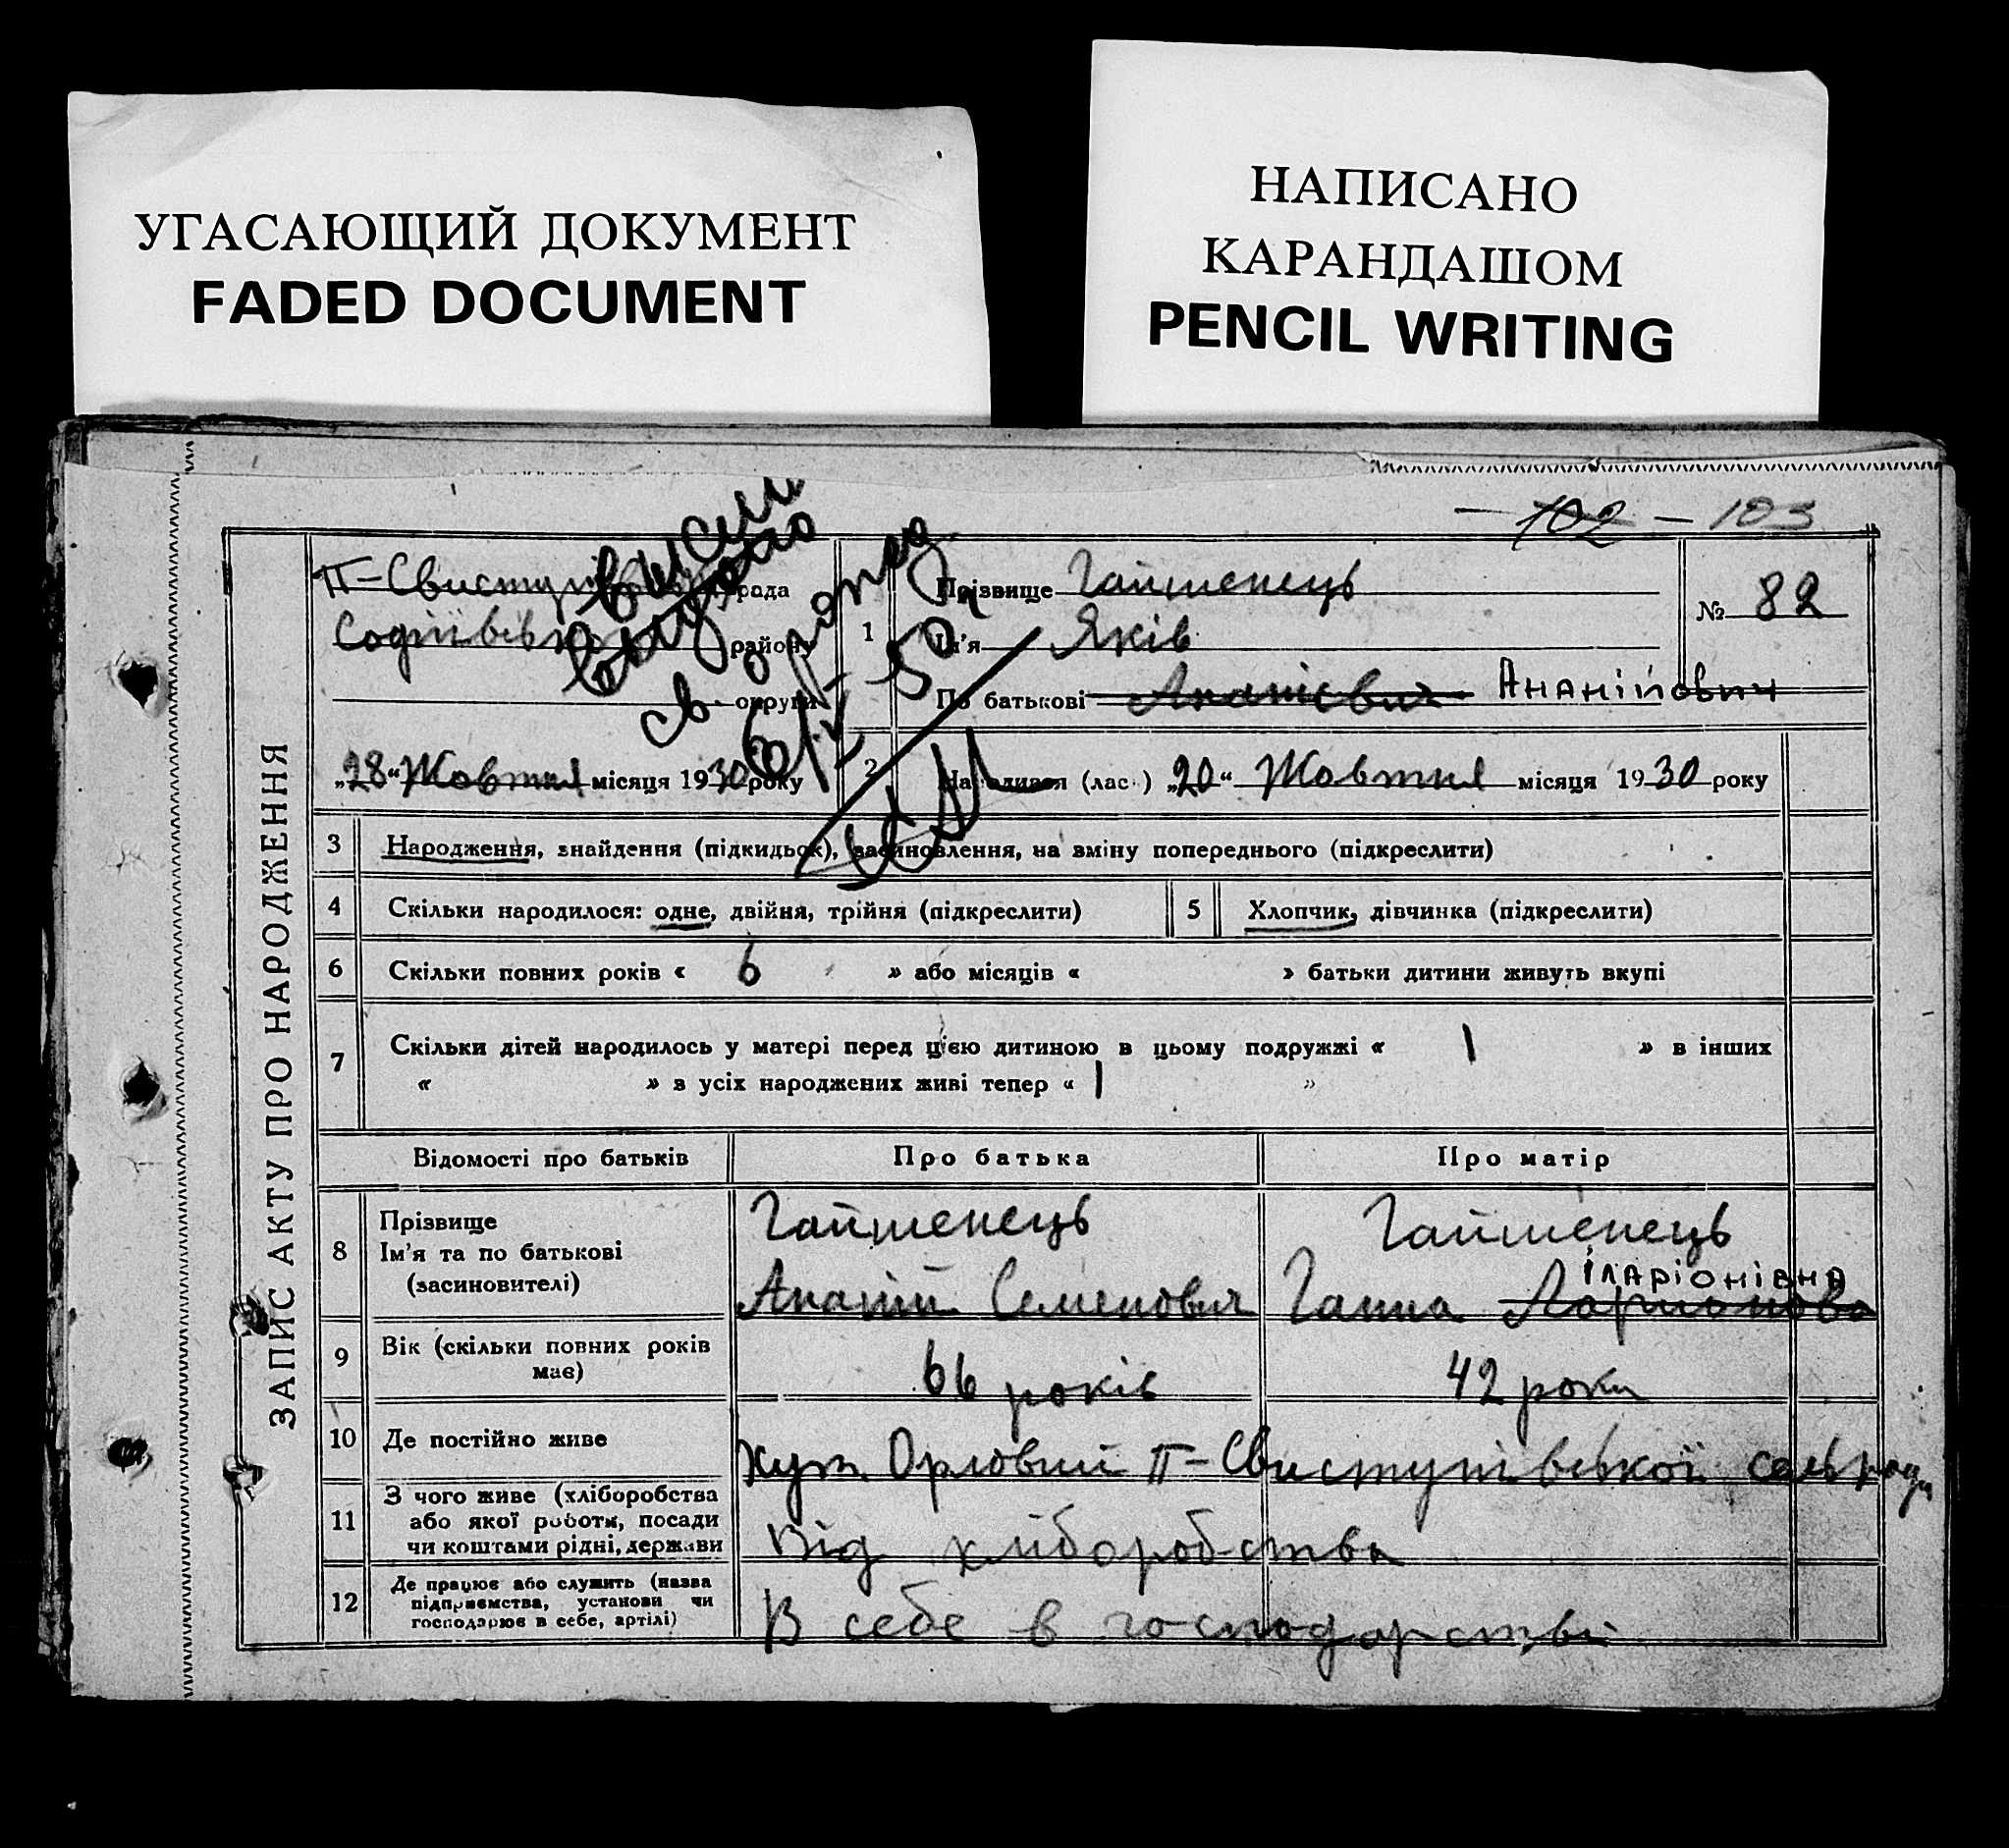 УГАСАЮЩИЙ ДОКУМЕНТ
FADED DOCUMENT
НАПИСАНО
КАРАНДАШОМ
PENCIL WRITING
102 - 103
ЗАПИС АКТУ ПРО НАРОДЖЕННЯ
рада
району
округи
„28“ Жовтня місяця 1930 року
1
Прізвище Гайшенець
Ім'я Яків
По батькові Ананієвич Ананійович
№ 82
2 (лас.) „20“ Жовтня місяця 1930 року
3 Народження, знайдення (підкидьок), засиновлення, на зміну попереднього (підкреслити)
4 Скільки народилося: одне, двійня, трійня (підкреслити) 5 Хлопчик, дівчинка (підкреслити)
6 Скільки повних років « 6 » або місяців « » батьки дитини живуть вкупі
7 Скільки дітей народилось у матері перед цією дитиною в цьому подружжі « 1 » в інших
« » з усіх народжених живі тепер « 1 »
Відомості про батьків Про батька Про матір
8 Прізвище
Ім'я та по батькові
(засиновителі)
Гайшенець
Ананій Семенович
Гайшенець
Іларіонівна
Ганна Ларионова
9 Вік (скільки повних років
має)
66 років 42 роки
10 Де постійно живе
хут. Орловий II-Свистунівської сельради
11 З чого живе (хліборобства
або якої роботи, посади
чи коштами рідні, держави
Від хліборобства
12 Де працює або служить (назва
підприємства, установи чи
господарює в себе, артілі)
В себе в господарстві